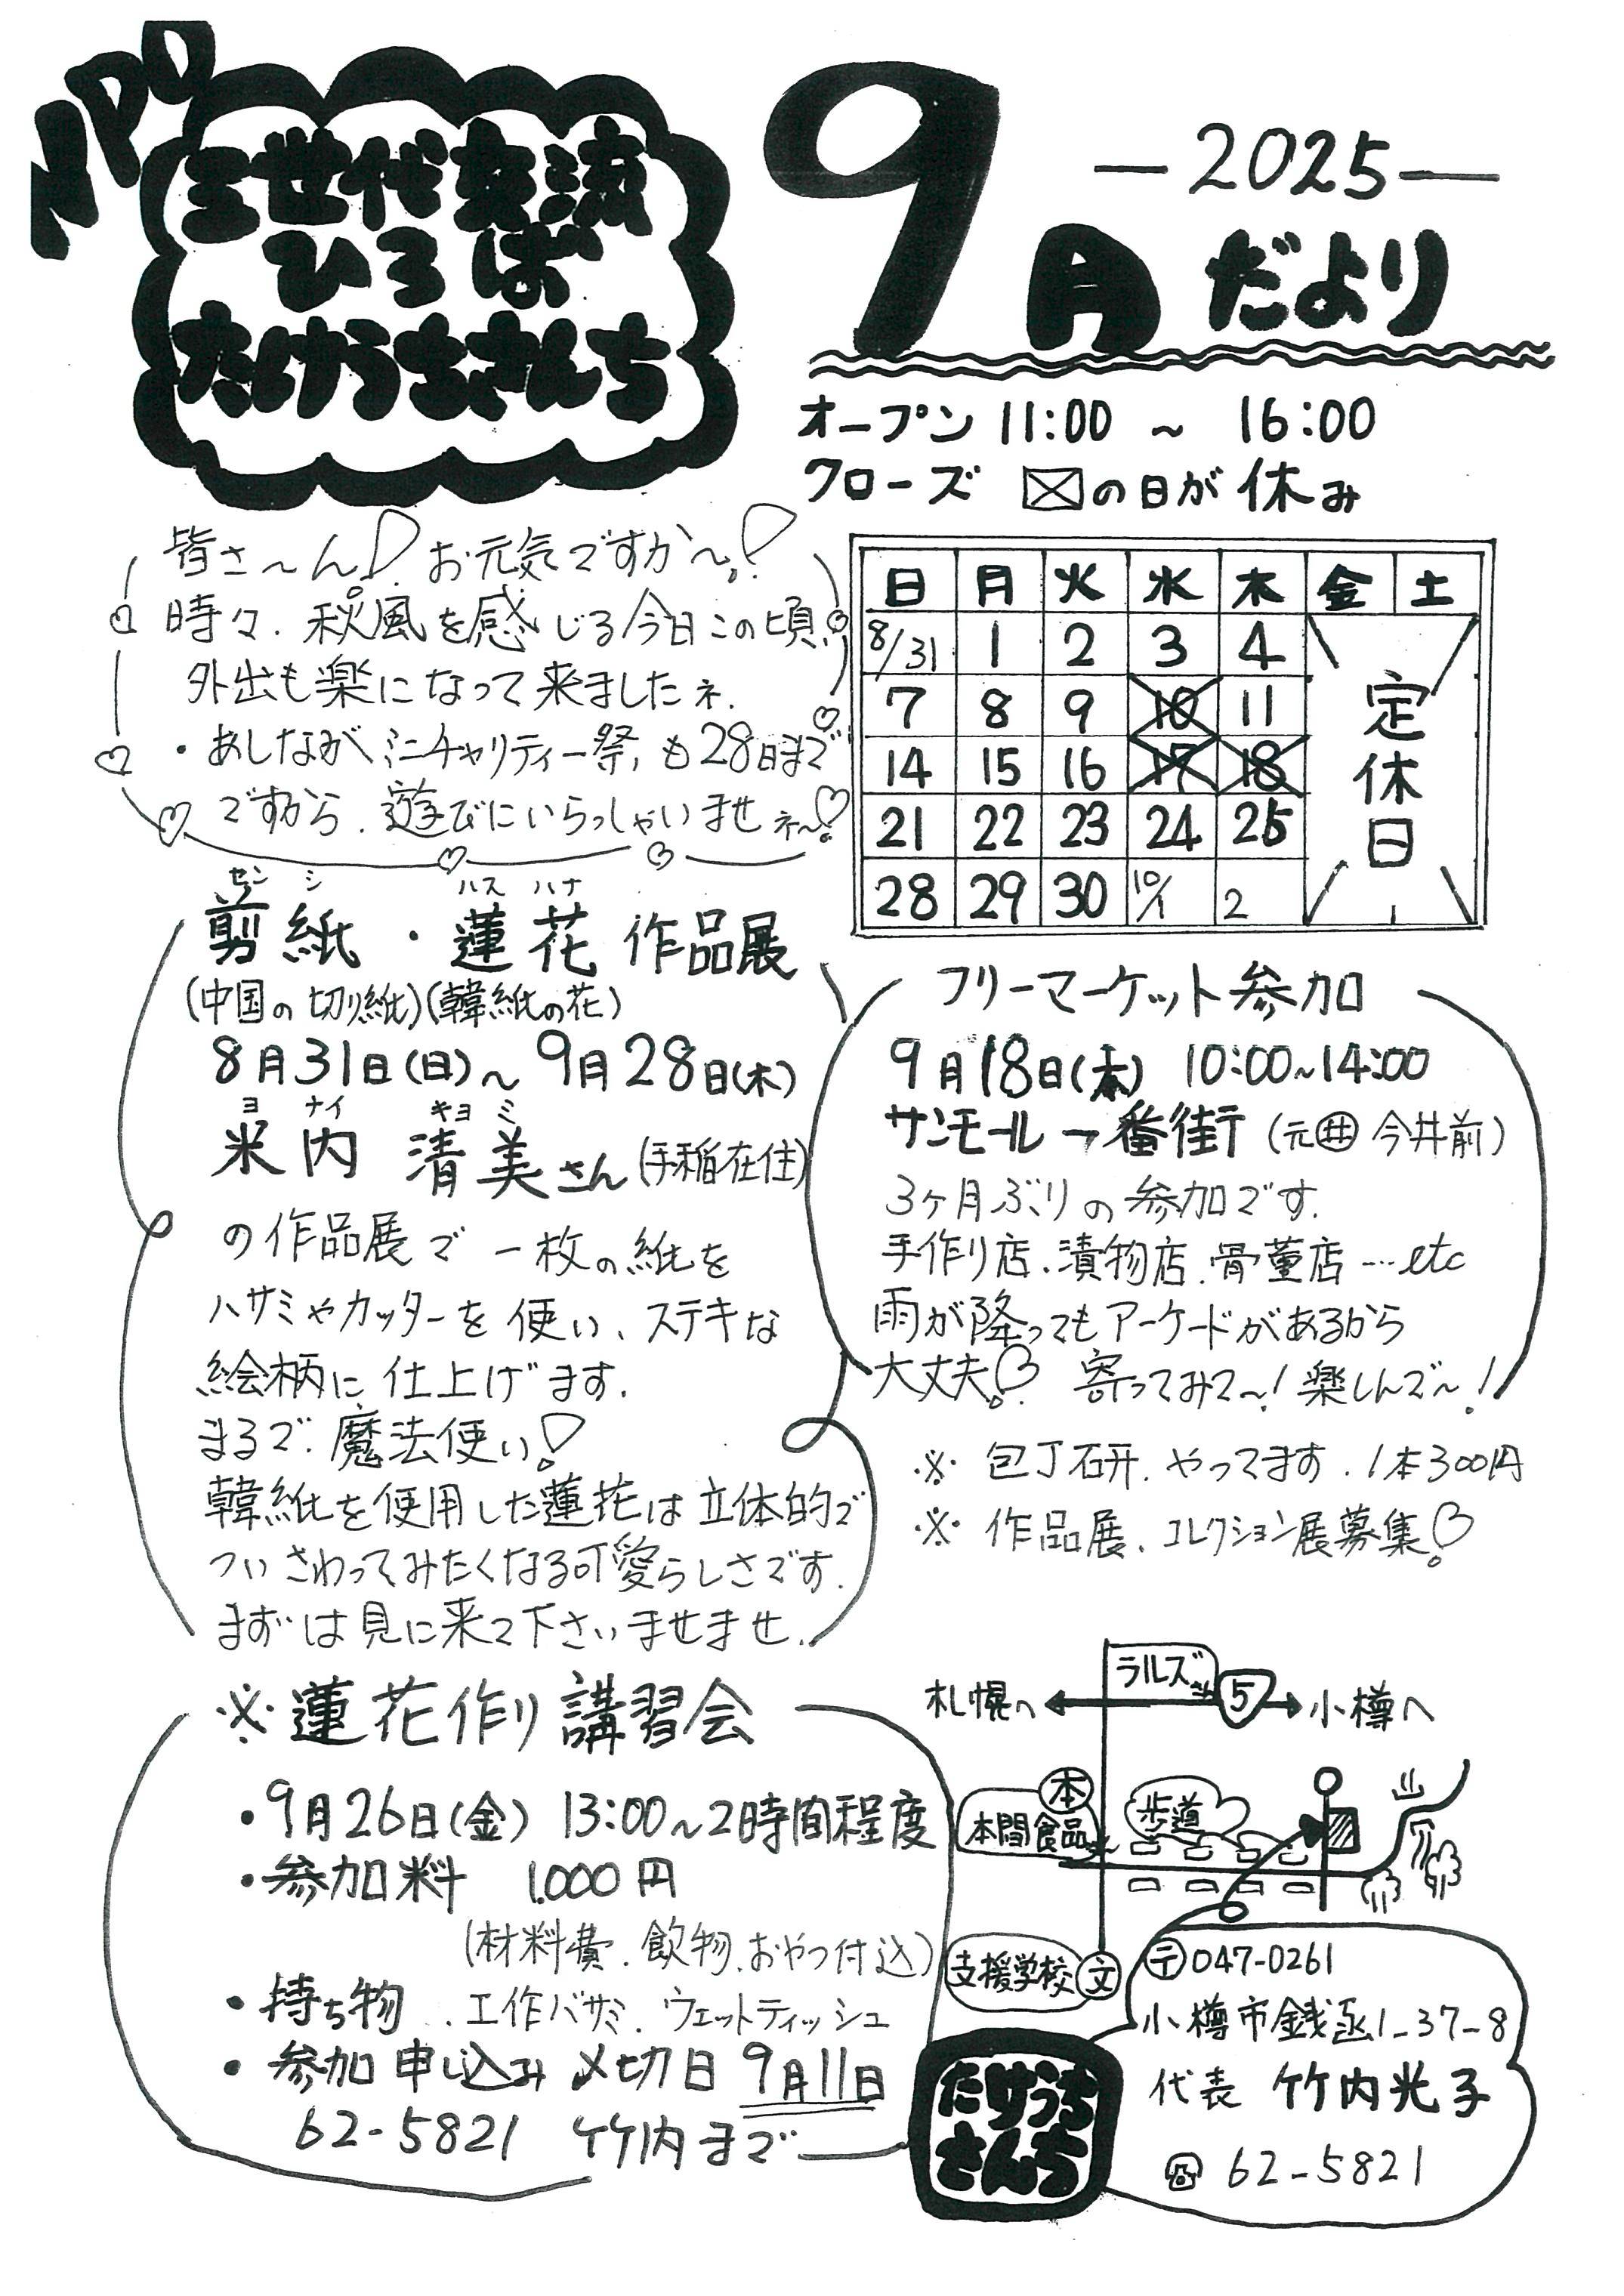 NPO
三世代交流
ひろば
たけうちさんち
9月だより
—2025—
オープン 11:00 ～ 16:00
クローズ ☒の日が休み
皆さ～ん! お元気ですか～!
時々、秋風を感じる今日この頃、
外出も楽になって来ましたネ.
・あしなが、ミニチャリティー祭、も28日まで
ですから、遊びにいらっしゃいませネ～!
日 月 火 水 木 金 土
8/31 1 2 3 4
7 8 9 10 11
14 15 16 17 18
21 22 23 24 25
28 29 30 10/1 2
定休日
センシ ハス ハナ
剪紙・蓮花 作品展
(中国の切り紙)(韓紙の花)
8月31日(日)～9月28日(木)
ヨナイ キヨミ
米内 清美さん(手稲在住)
の作品展で一枚の紙を
ハサミやカッターを使い、ステキな
絵柄に仕上げます.
まるで、魔法使い!
韓紙を使用した蓮花は立体的で
ついさわってみたくなる可愛らしさです.
まずは見に来て下さいませませ.
フリーマーケット参加
9月18日(木) 10:00～14:00
サンモール一番街 (元㊇今井前)
3ヶ月ぶりの参加です.
手作り店、漬物店、骨董店…etc
雨が降ってもアーケードがあるから
大丈夫! 寄ってみて～! 楽しんで～!
※ 包丁研、やってます. 1本300円
※ 作品展、コレクション展募集!
※蓮花作り講習会
・9月26日(金) 13:00～2時間程度
・参加料 1.000円
(材料費、飲物、おやつ付込)
・持ち物 、工作バサミ、ウェットティッシュ
・参加申し込み〆切日 9月11日
62-5821 竹内まで
ラルズ
札幌へ 5 小樽へ
本
本間食品
歩道
支援学校 文
〒047-0261
小樽市銭函1-37-8
代表 竹内光子
☎ 62-5821
たけうち
さんち